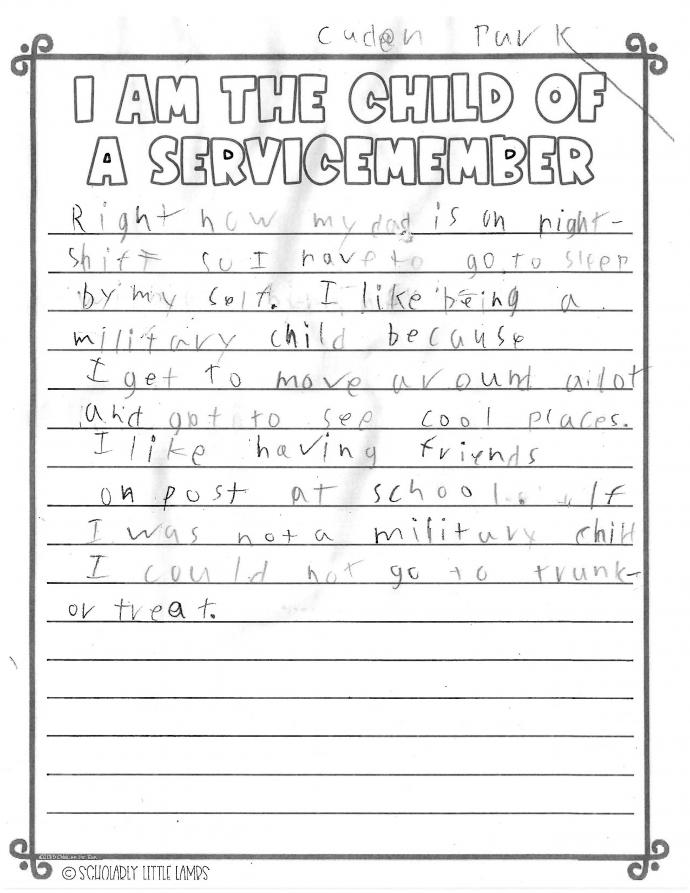 Caden Park
I AM THE CHILD OF
A SERVICEMEMBER
Right now my dad is on night-
shift so I have to go to sleep
by my self. I like being a
military child because
I get to move around alot
and got to see cool places.
I like having friends
on post at school. If
I was not a military child
I could not go to trunk-
or treat.
© SCHOLARLY LITTLE LAMPS